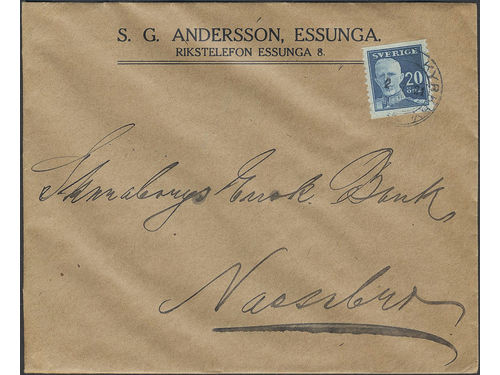 S. G. ANDERSSON, ESSUNGA.
RIKSTELEFON ESSUNGA 8.
SVERIGE
20
ÖRE
Skaraborgs Ensk. Bank
Nossebro